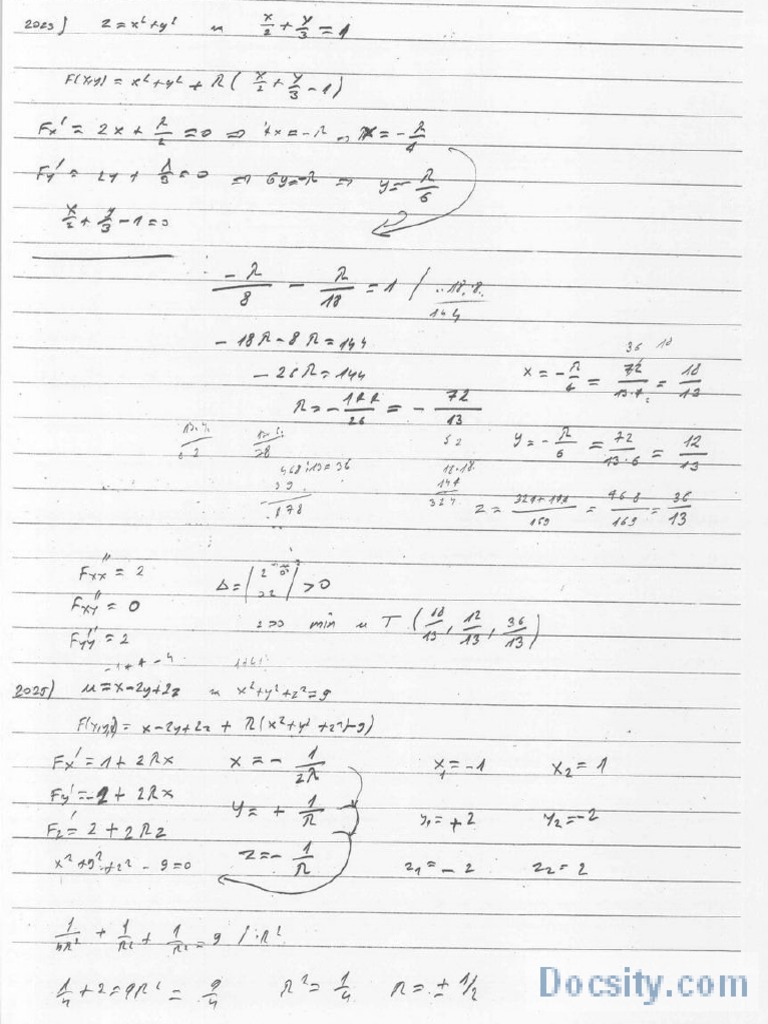 2023) z = x² + y² u x/2 + y/3 = 1
F(x,y) = x² + y² + λ ( x/2 + y/3 - 1)
Fx' = 2x + λ/2 = 0 ⇒ 4x = -λ ⇒ x = -λ/4
Fy' = 2y + λ/3 = 0 ⇒ 6y = -λ ⇒ y = -λ/6
x/2 + y/3 - 1 = 0
-λ/8 - λ/18 = 1 / ·18·8
144
-18λ - 8λ = 144
36 18
-26λ = 144
x = -λ/4 = 72/13·4 = 18/13
λ = -144/26 = -72/13
y = -λ/6 = 72/13·6 = 12/13
52
468:13=36
39
78
18·18
144
324
z = 324+144/169 = 468/169 = 36/13
Fxx'' = 2
Δ = |2 0 0 2| > 0
Fxy'' = 0
⇒ min u T (18/13, 12/13, 36/13)
Fyy'' = 2
2025) u = x - 2y + 2z u x² + y² + z² = 9
F(x,y,z) = x - 2y + 2z + λ(x² + y² + z² - 9)
Fx' = 1 + 2λx x = - 1/2λ x₁ = -1 x₂ = 1
Fy' = -2 + 2λx y = + 1/λ y₁ = +2 y₂ = -2
Fz' = 2 + 2λz z = - 1/λ z₁ = -2 z₂ = 2
x² + y² + z² - 9 = 0
1/4λ² + 1/λ² + 1/λ² = 9 / ·λ²
1/4 + 2 = 9λ² = 9/4 λ² = 1/4 λ = ± 1/2
Docsity.com